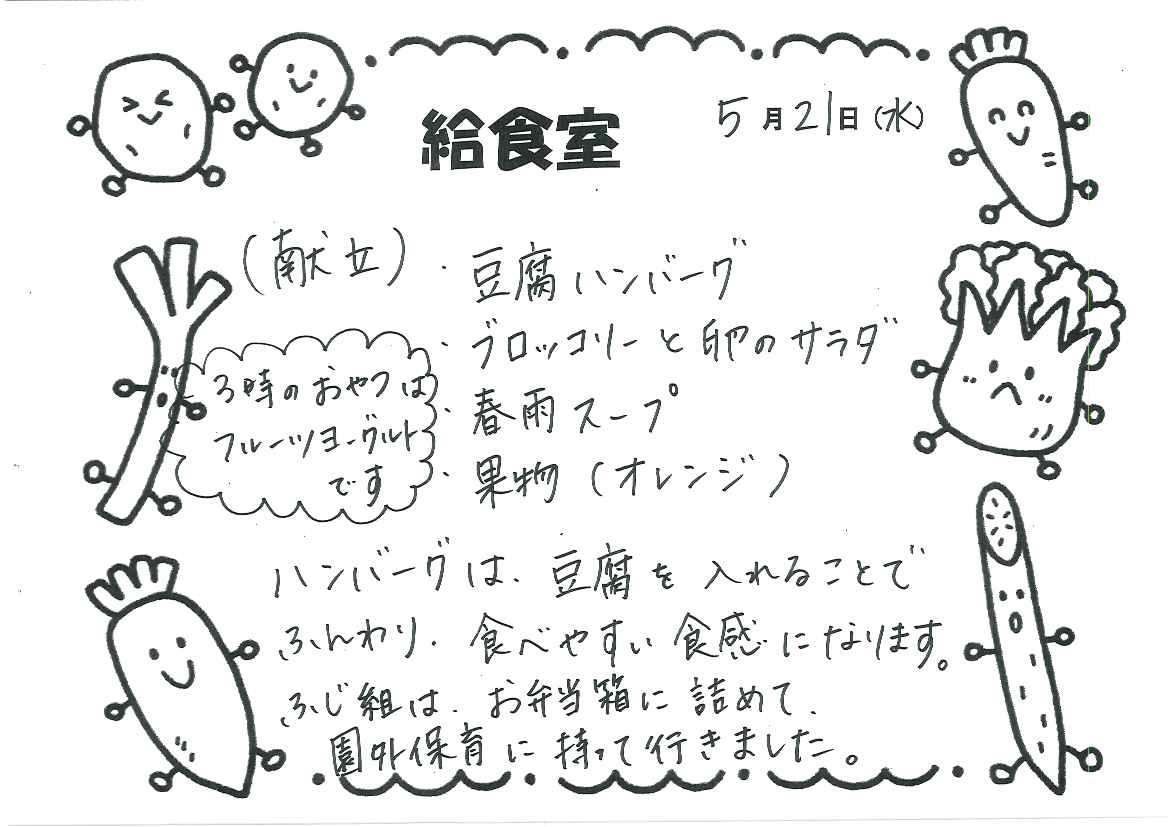 給食室
5月21日(水)
(献立)
・豆腐ハンバーグ
・ブロッコリーと卵のサラダ
・春雨スープ
・果物(オレンジ)
3時のおやつは
フルーツヨーグルト
です
ハンバーグは、豆腐を入れることで
ふんわり、食べやすい食感になります。
ふじ組は、お弁当箱に詰めて、
園外保育に持って行きました。